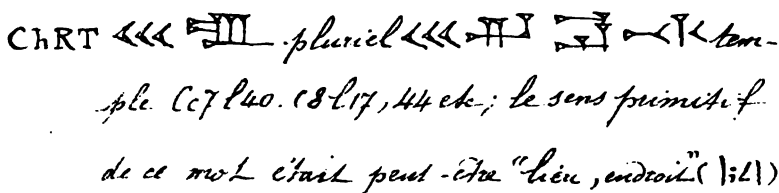 ChRT 𒌍 pluriel 𒌍 tem-
ple (c7 l40. c8 l17, 44 etc; le sens primitif
de ce mot était peut-être "lieu, endroit"